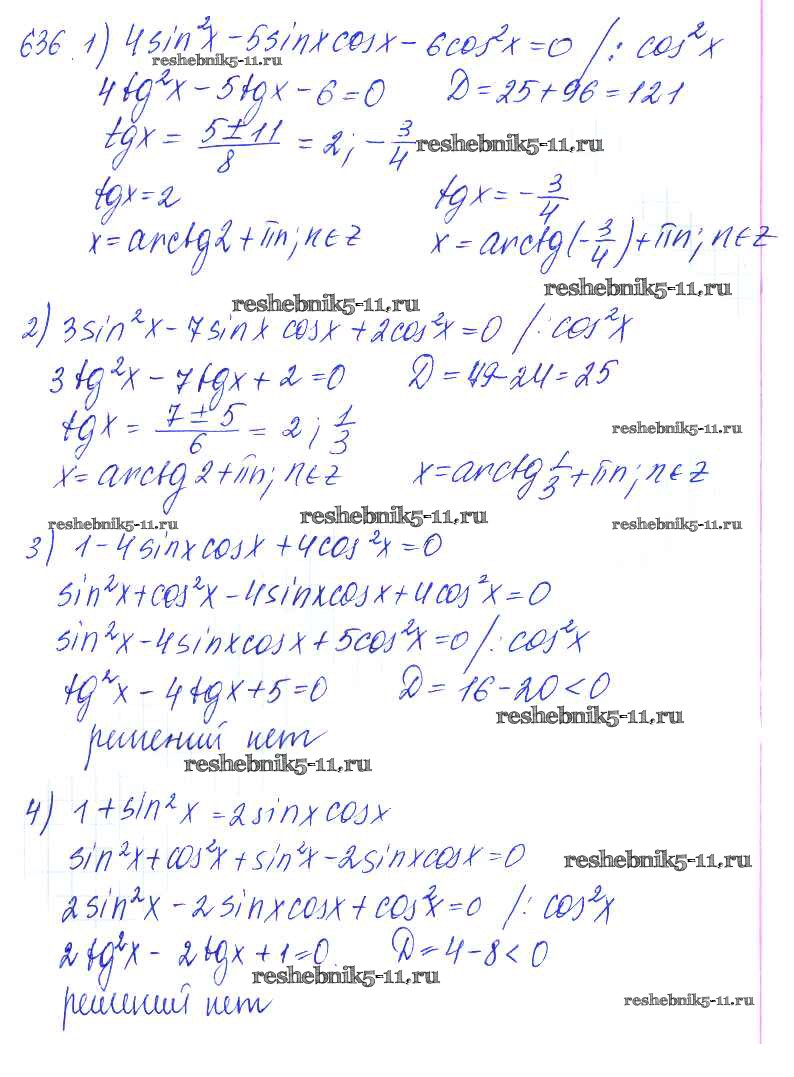 636. 1) 4sin²x - 5sinx cosx - 6cos²x = 0 /: cos²x
reshebnik5-11.ru
4tg²x - 5tgx - 6 = 0 D = 25 + 96 = 121
tgx = (5 ± 11)/8 = 2; -3/4 reshebnik5-11.ru
tgx = 2 tgx = -3/4
x = arctg2 + πn; n∈Z x = arctg(-3/4) + πn; n∈Z
reshebnik5-11.ru
reshebnik5-11.ru
2) 3sin²x - 7sinx cosx + 2cos²x = 0 /: cos²x
3tg²x - 7tgx + 2 = 0 D = 49 - 24 = 25
tgx = (7 ± 5)/6 = 2; 1/3 reshebnik5-11.ru
x = arctg2 + πn; n∈Z x = arctg 1/3 + πn; n∈Z
reshebnik5-11.ru reshebnik5-11.ru reshebnik5-11.ru
3) 1 - 4sinxcosx + 4cos²x = 0
sin²x + cos²x - 4sinxcosx + 4cos²x = 0
sin²x - 4sinxcosx + 5cos²x = 0 /: cos²x
tg²x - 4tgx + 5 = 0 D = 16 - 20 < 0
reshebnik5-11.ru
решений нет
reshebnik5-11.ru
4) 1 + sin²x = 2sinxcosx
sin²x + cos²x + sin²x - 2sinxcosx = 0 reshebnik5-11.ru
2sin²x - 2sinxcosx + cos²x = 0 /: cos²x
2tg²x - 2tgx + 1 = 0 D = 4 - 8 < 0
reshebnik5-11.ru
решений нет reshebnik5-11.ru